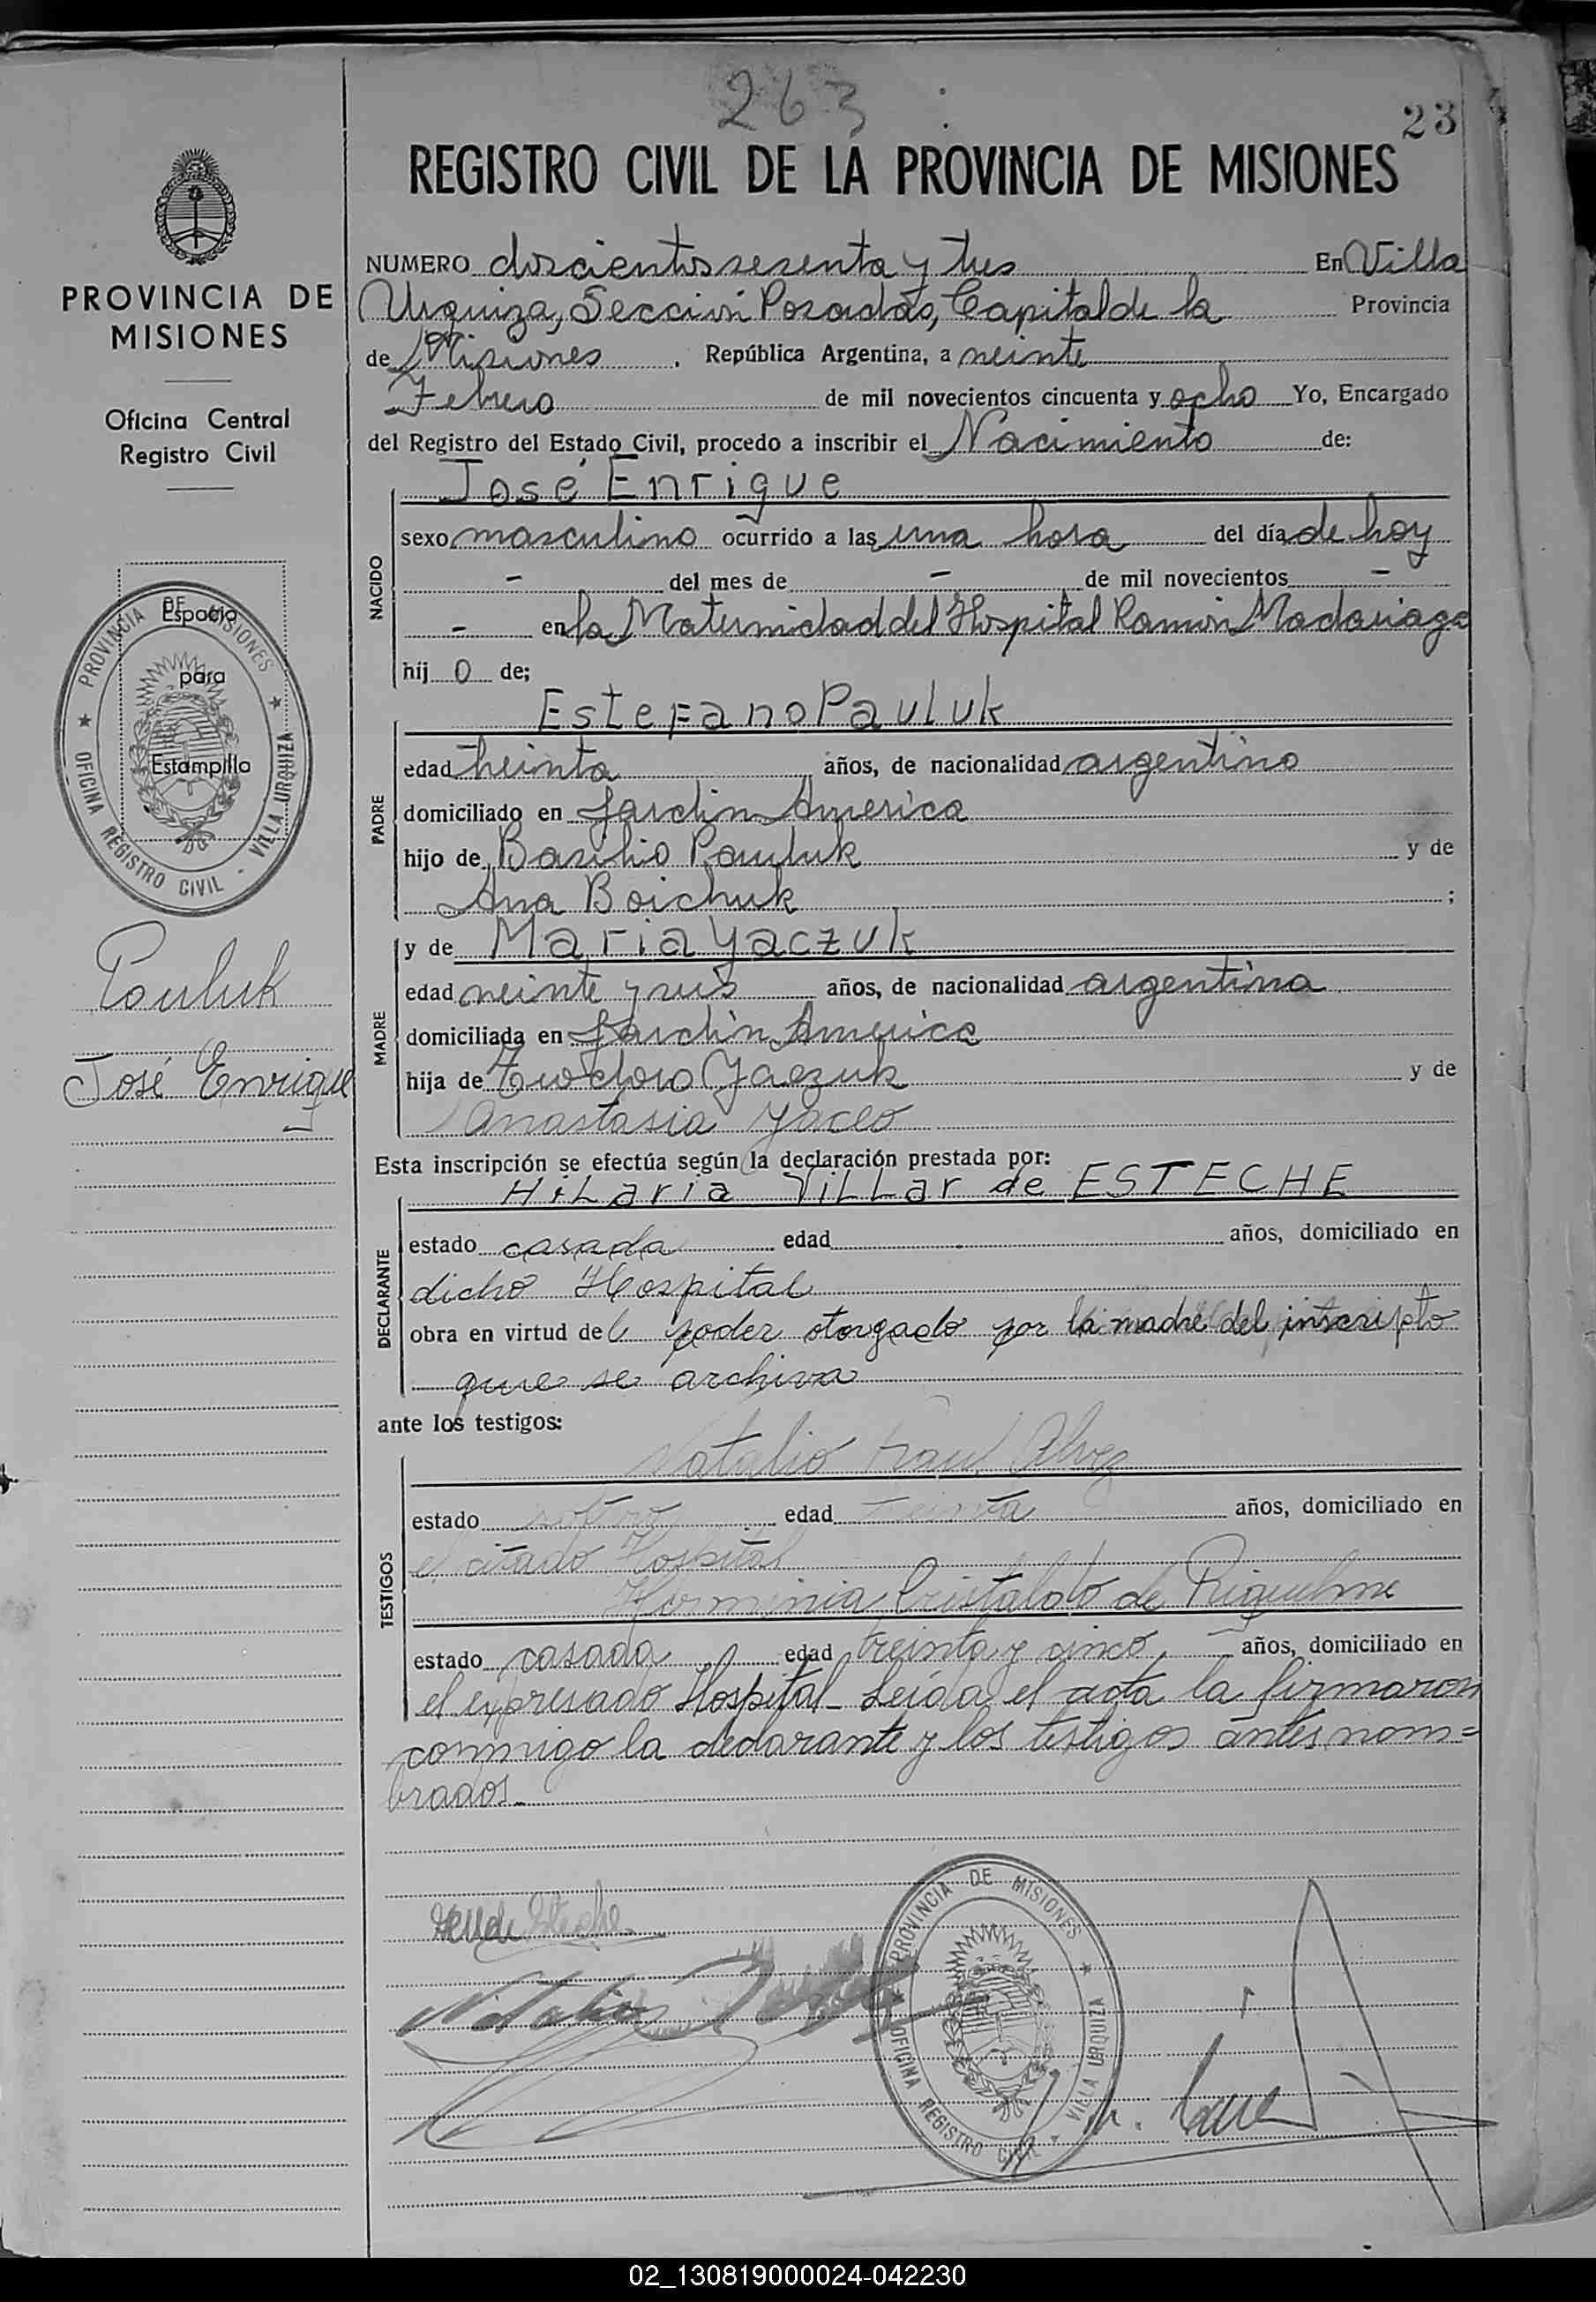 263
23
REGISTRO CIVIL DE LA PROVINCIA DE MISIONES
PROVINCIA DE
MISIONES
Oficina Central
Registro Civil
PROVINCIA DE MISIONES
OFICINA REGISTRO CIVIL - VILLA URQUIZA
Espacio
para
Estampilla
Pauluk
José Enrique
NUMERO doscientos sesenta y tres En Villa
Urquiza, Sección Posadas, Capital de la Provincia
de Misiones . República Argentina, a veinte
Febrero de mil novecientos cincuenta y ocho Yo, Encargado
del Registro del Estado Civil, procedo a inscribir el Nacimiento de:
José Enrique
NACIDO
sexo masculino ocurrido a las una hora del día de hoy
- del mes de - de mil novecientos -
- en la Maternidad del Hospital Ramón Madariaga
hij o de;
Estefano Pauluk
PADRE
edad treinta años, de nacionalidad argentino
domiciliado en Jardín America
hijo de Basilio Pauluk y de
Ana Boichuk ;
y de Maria Yaczuk
MADRE
edad veinte y seis años, de nacionalidad argentina
domiciliada en Jardín America
hija de Teodoro Yaczuk y de
Anastasia Yaceo
Esta inscripción se efectúa según la declaración prestada por:
Hilaria Villar de ESTECHE
DECLARANTE
estado casada edad años, domiciliado en
dicho Hospital
obra en virtud del poder otorgado por la madre del inscripto
que se archiva
ante los testigos:
Natalio Raul Alvez
TESTIGOS
estado soltero edad treinta años, domiciliado en
el citado Hospital
Herminia Cristaldo de Riquelme
estado casada edad treinta y cinco años, domiciliado en
el expresado Hospital - Leída el acta la firmaron
conmigo la declarante y los testigos antes nom=
brados.-
Esteche
Natalio
PROVINCIA DE MISIONES
OFICINA REGISTRO CIVIL VILLA URQUIZA
02_130819000024-042230